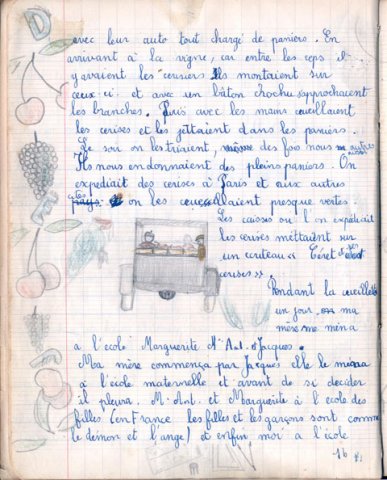 avec leur auto tout chargé de paniers. En
arrivant à la vigne, car entre les ceps il
y avaient les cerisiers Ils montaient sur
ceux-ci et avec un bâton crochu s'approchaient
les branches. Puis avec les mains cueillaient
les cerises et les jittaient dans les paniers.
Le soir on les triaient, des fois nous autres
Ils nous en donnaient des pleins paniers. On
expédiait des cerises à Paris et aux autres
pays on les cueuellaient presque vertes.
Les caisses ou l'on expédiait
les cerises mettaient sur
un cuteau « Céret et des
cerises ».
Pendant la cueillette
un jour, ma
mère me mena
a l'école Marguerite M. Ant. et Jacques.
Ma mère commença par Jacques elle leména
à l'école maternelle et avant de si decider
il pleura. M. Ant. et Marguerite à l'école des
filles (en France les filles et les garçons sont comme
le démon et l'ange) et enfin moi a l'école
16